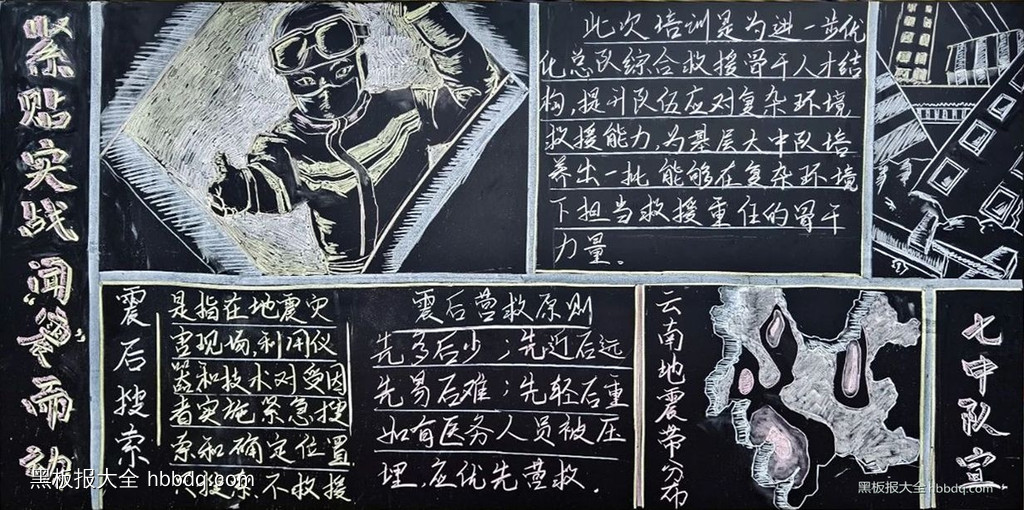 紧贴实战 闻令而动
此次培训是为进一步优
化总队综合救援骨干人才结
构,提升队伍应对复杂环境
救援能力,为基层大中队培
养出一批能够在复杂环境
下担当救援重任的骨干
力量。
震后搜索
是指在地震灾
害现场,利用仪
器和技术对受困
者实施紧急搜
索和确定位置
只搜索,不救援
震后营救原则
先多后少;先近后远
先易后难;先轻后重
如有医务人员被压
埋,应优先营救.
云南地震带分布
七中队宣
黑板报大全 hbbdq.com
黑板报大全 hbbdq.com